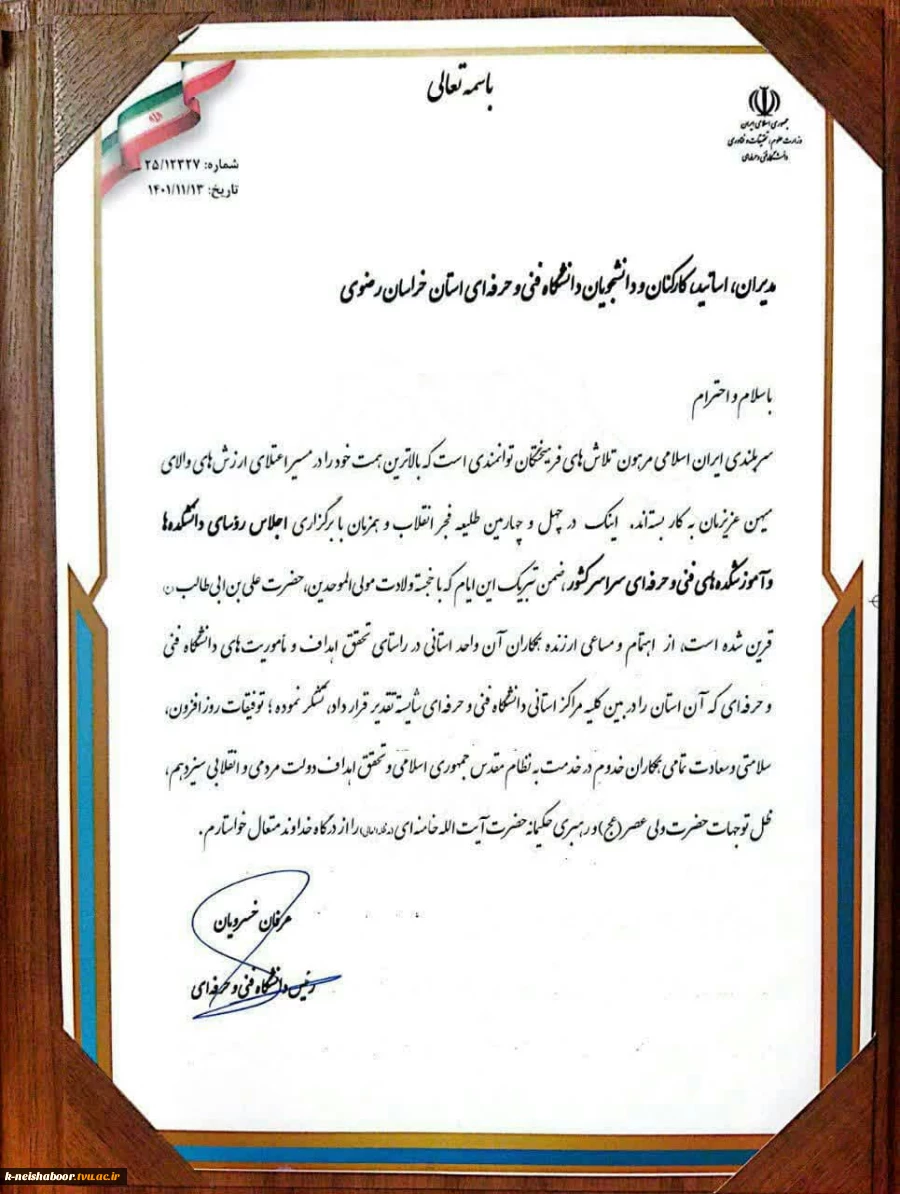 باسمه تعالی
جمهوری اسلامی ایران
وزارت علوم، تحقیقات و فناوری
دانشگاه فنی و حرفه‌ای
شماره: ۲۵/۱۲۳۲۷
تاریخ: ۱۴۰۱/۱۱/۱۳
مدیران، اساتید، کارکنان و دانشجویان دانشگاه فنی و حرفه ای استان خراسان رضوی
با سلام و احترام
سربلندی ایران اسلامی مرهون تلاش های فرهیختگان توانمندی است که بالاترین همت خود را در مسیر اعتلای ارزش های والای
میهن عزیزمان به کار بسته‌اند. اینک در چهل و چهارمین طلیعه فجر انقلاب و همزمان با برگزاری اجلاس رؤسای دانشکده‌ها
و آموزشکده‌های فنی و حرفه ای سراسر کشور، ضمن تبریک این ایام که با خجسته ولادت مولی الموحدین، حضرت علی بن ابی طالب (ع)
قرین شده است، از اهتمام و مساعی ارزنده همکاران آن واحد استانی در راستای تحقق اهداف و مأموریت های دانشگاه فنی
و حرفه‌ای که آن استان را در بین کلیه مراکز استانی دانشگاه فنی و حرفه‌ای شایسته تقدیر قرار داد، تشکر نموده ؛ توفیقات روز افزون،
سلامتی و سعادت تمامی همکاران خدوم در خدمت به نظام مقدس جمهوری اسلامی و تحقق اهداف دولت مردمی و انقلابی سیزدهم،
ظل توجهات حضرت ولی عصر (عج) و رهبری حکیمانه حضرت آیت الله خامنه ای (مدظله العالی) را از درگاه خداوند متعال خواستارم.
عرفان خسرویان
رئیس دانشگاه فنی و حرفه‌ای
k-neishaboor.tvu.ac.ir